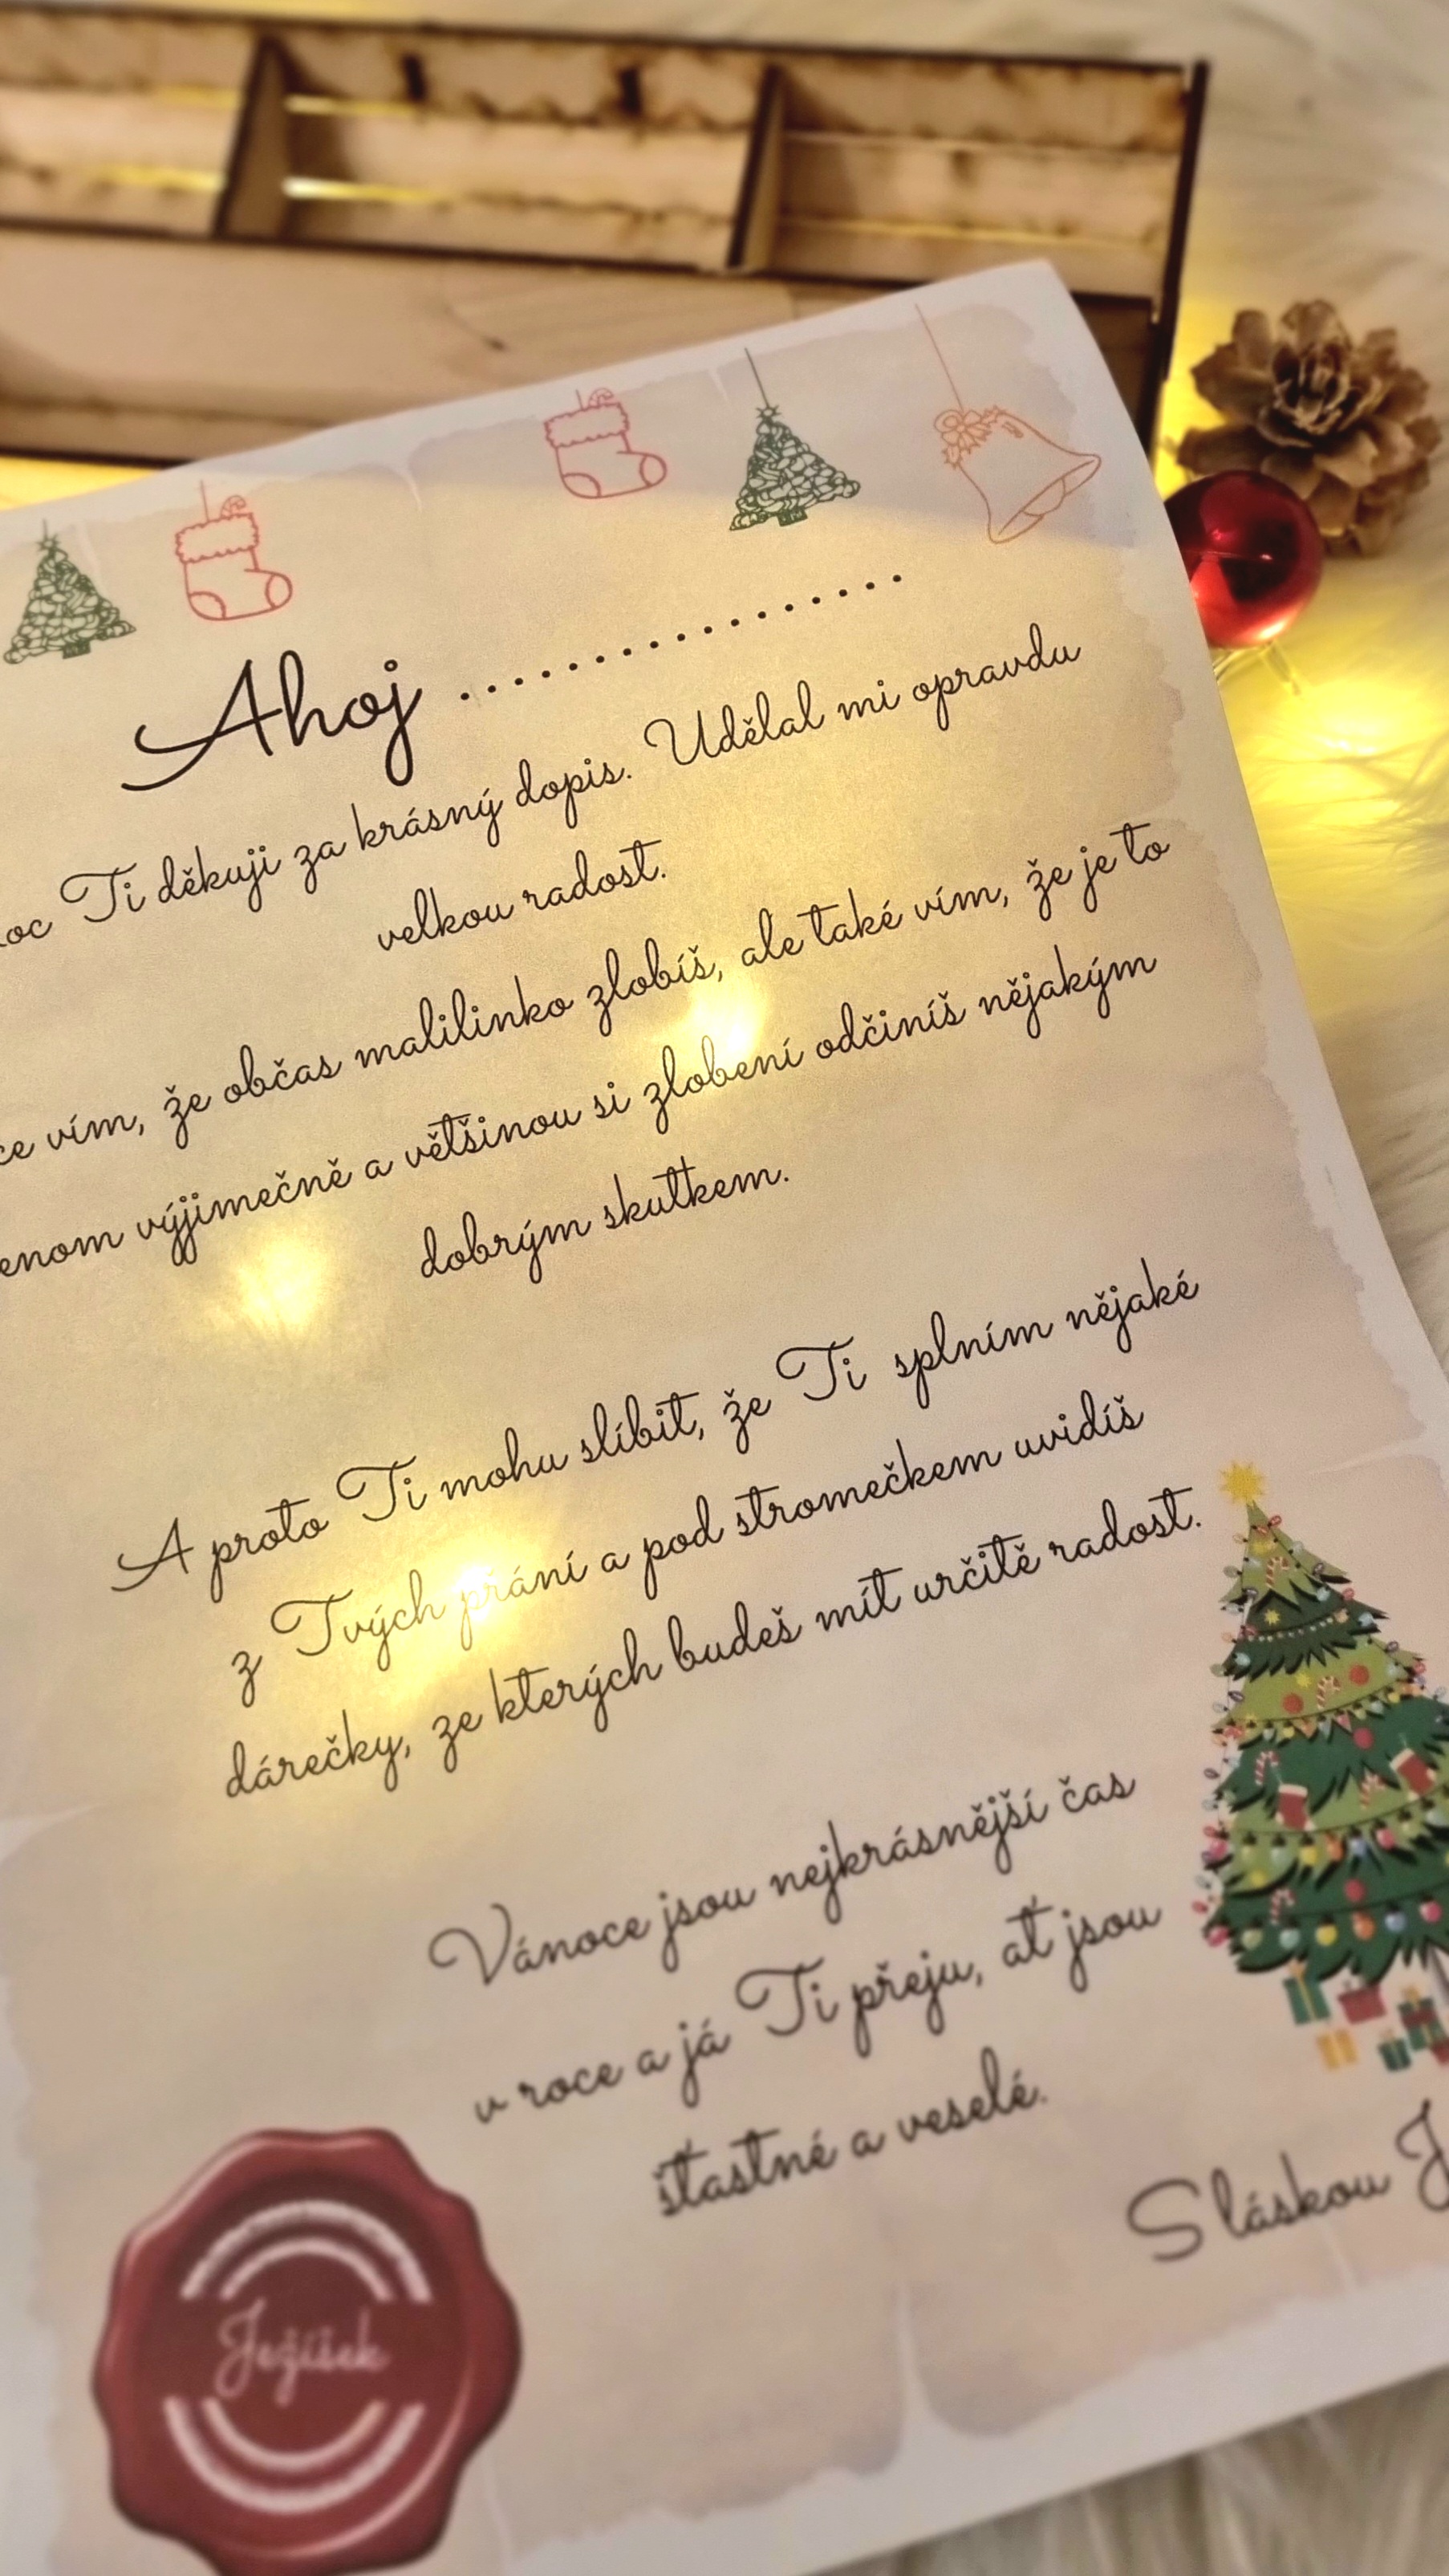 Ahoj ..................
Ti děkuji za krásný dopis. Udělal mi opravdu
velkou radost.
vím, že občas malilinko zlobíš, ale také vím, že je to
výjimečně a většinou si zlobení odčiníš nějakým
dobrým skutkem.
A proto Ti mohu slíbit, že Ti splním nějaké
z Tvých přání a pod stromečkem uvidíš
dárečky, ze kterých budeš mít určitě radost.
Vánoce jsou nejkrásnější čas
v roce a já Ti přeju, ať jsou
šťastné a veselé.
S láskou
Ježíšek